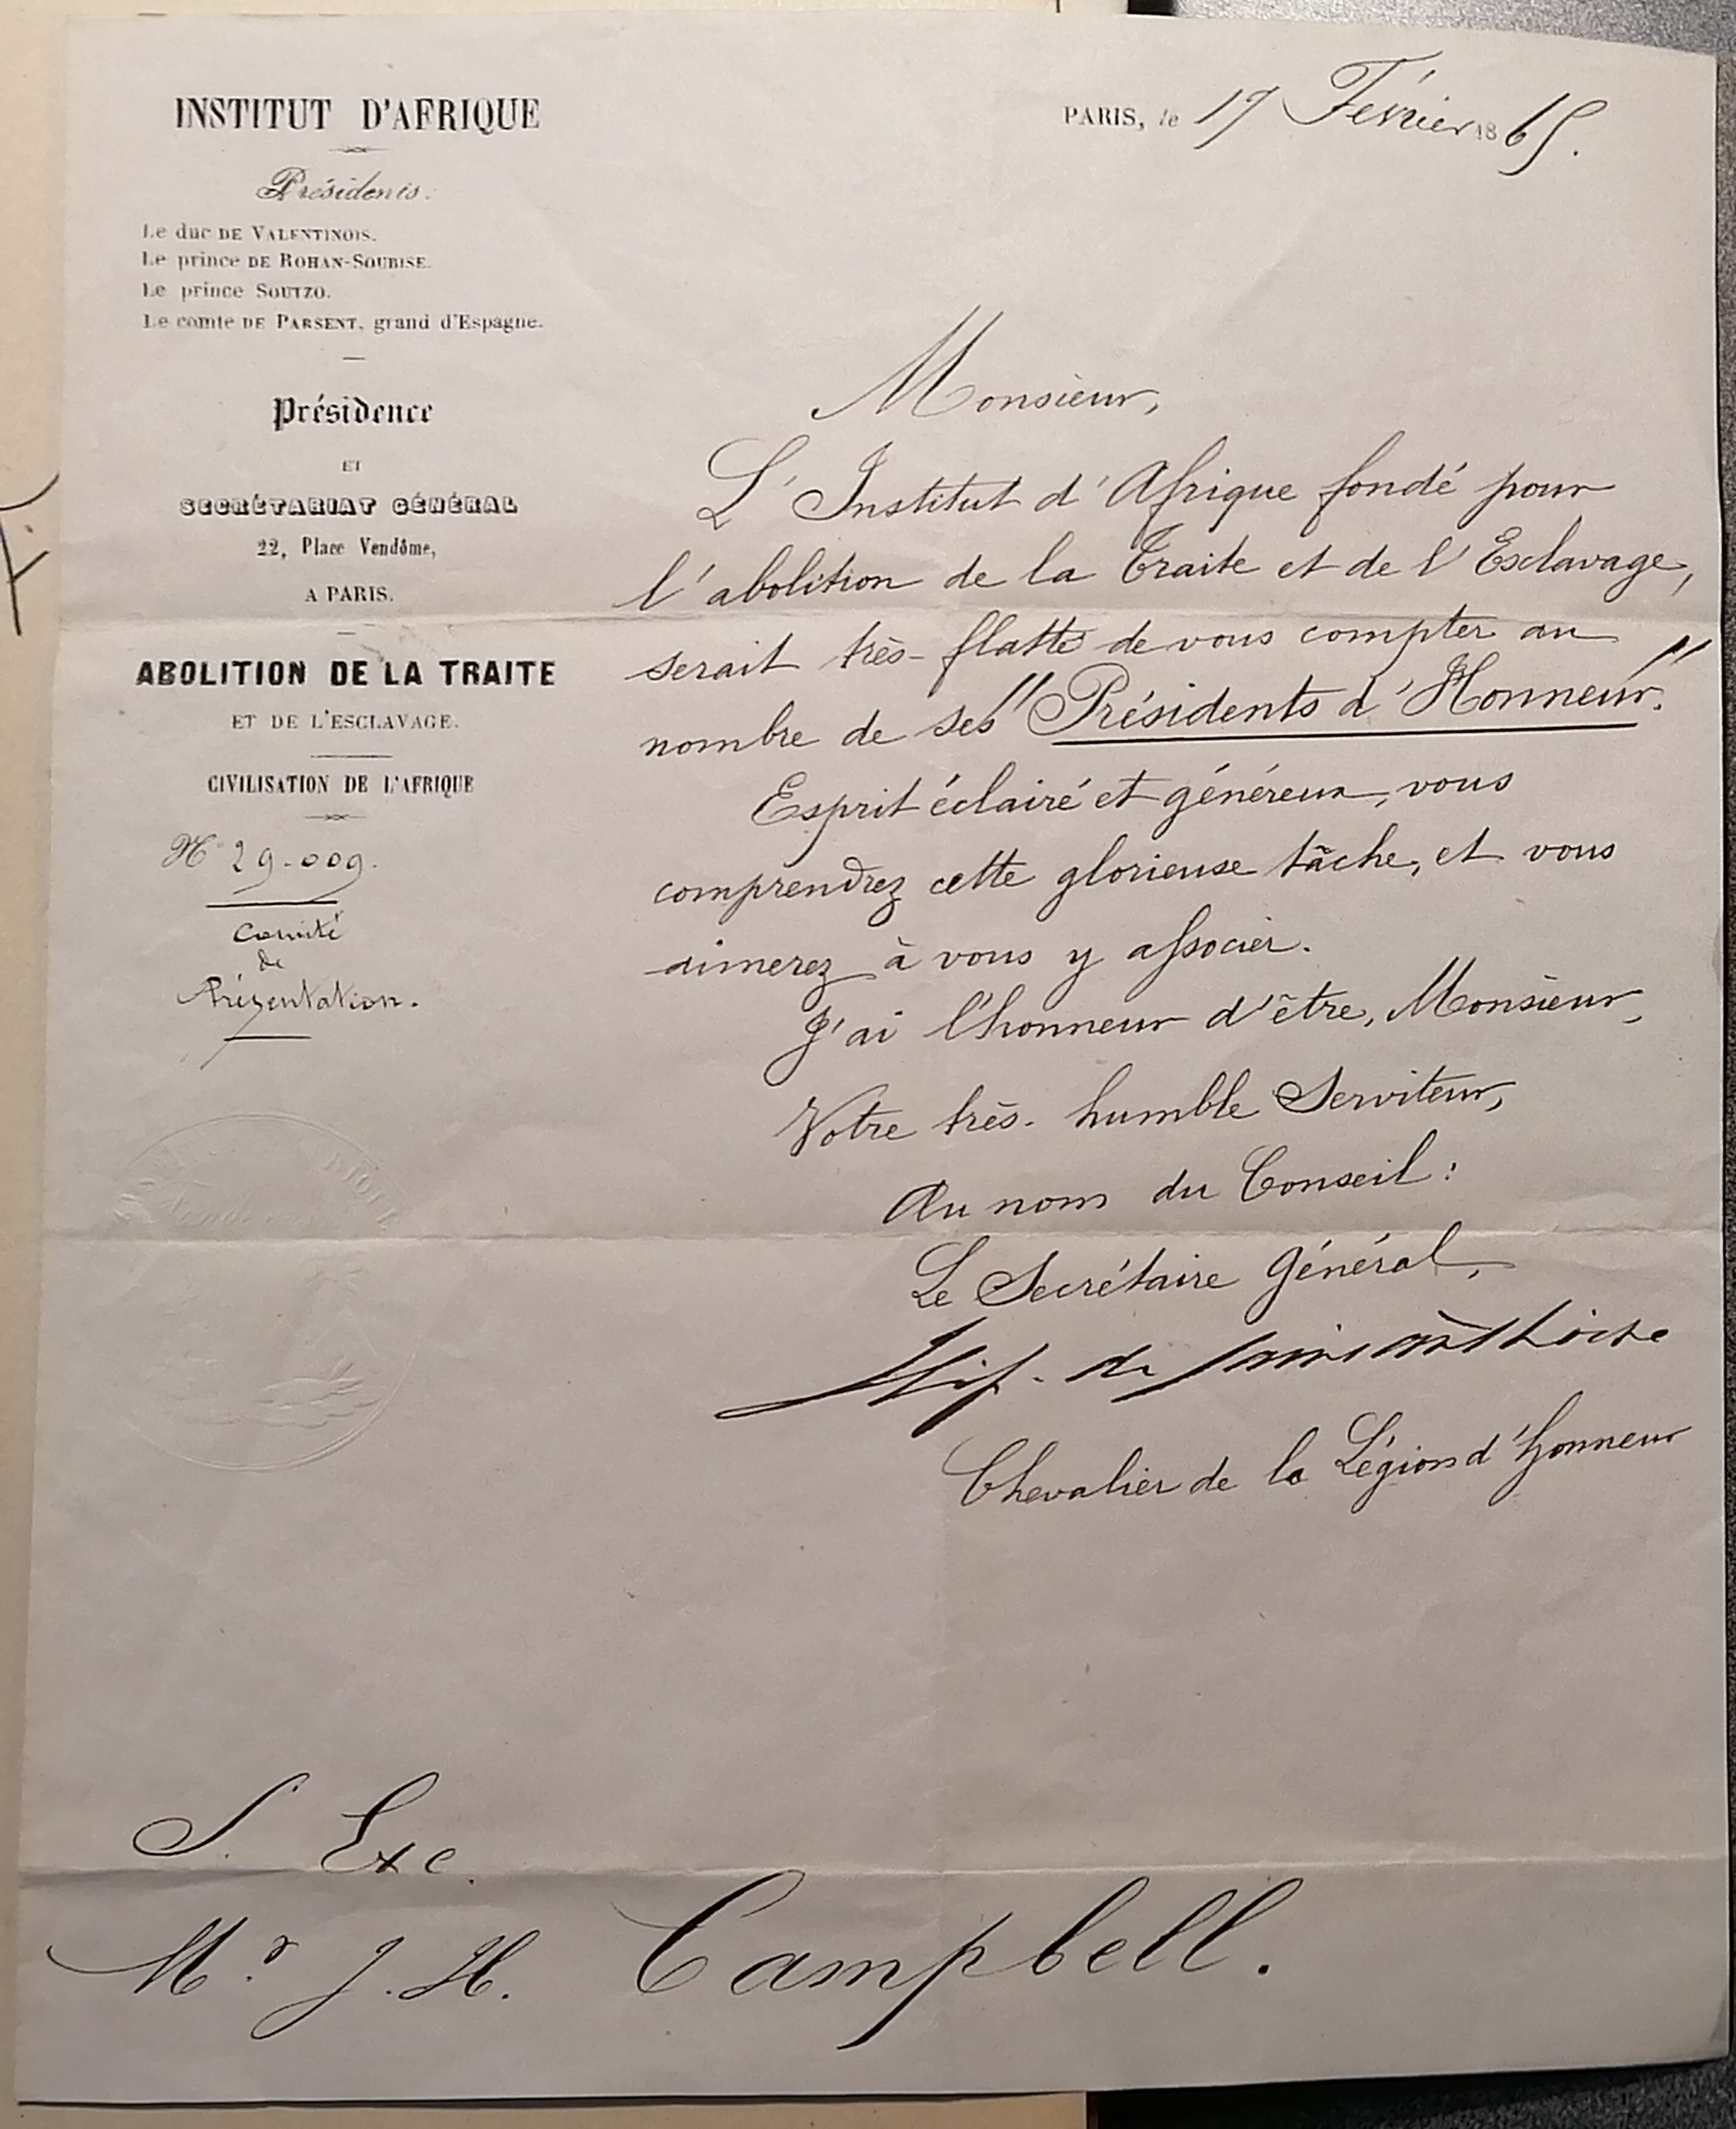 INSTITUT D'AFRIQUE
Présidents.
Le duc DE VALENTINOIS.
Le prince DE ROHAN-SOUBISE.
Le prince SOUTZO.
Le comte DE PARSENT, grand d'Espagne.
Présidence
ET
SECRÉTARIAT GÉNÉRAL
22, Place Vendôme,
A PARIS.
ABOLITION DE LA TRAITE
ET DE L'ESCLAVAGE.
CIVILISATION DE L'AFRIQUE
N° 29.009.
Comité
de
Présentation.
PARIS, le 17 Février 1865.
Monsieur,
L'Institut d'Afrique fondé pour
l'abolition de la Traite et de l'Esclavage,
serait très-flatté de vous compter au
nombre de ses "Présidents d'Honneur."
Esprit éclairé et généreux, vous
comprendrez cette glorieuse tâche, et vous
aimerez à vous y associer.
J'ai l'honneur d'être, Monsieur,
Votre très-humble Serviteur,
Au nom du Conseil:
Le Secrétaire Général,
Hip. de
Chevalier de la Légion d'honneur
S. Exc.
Mr. J. H. Campbell.